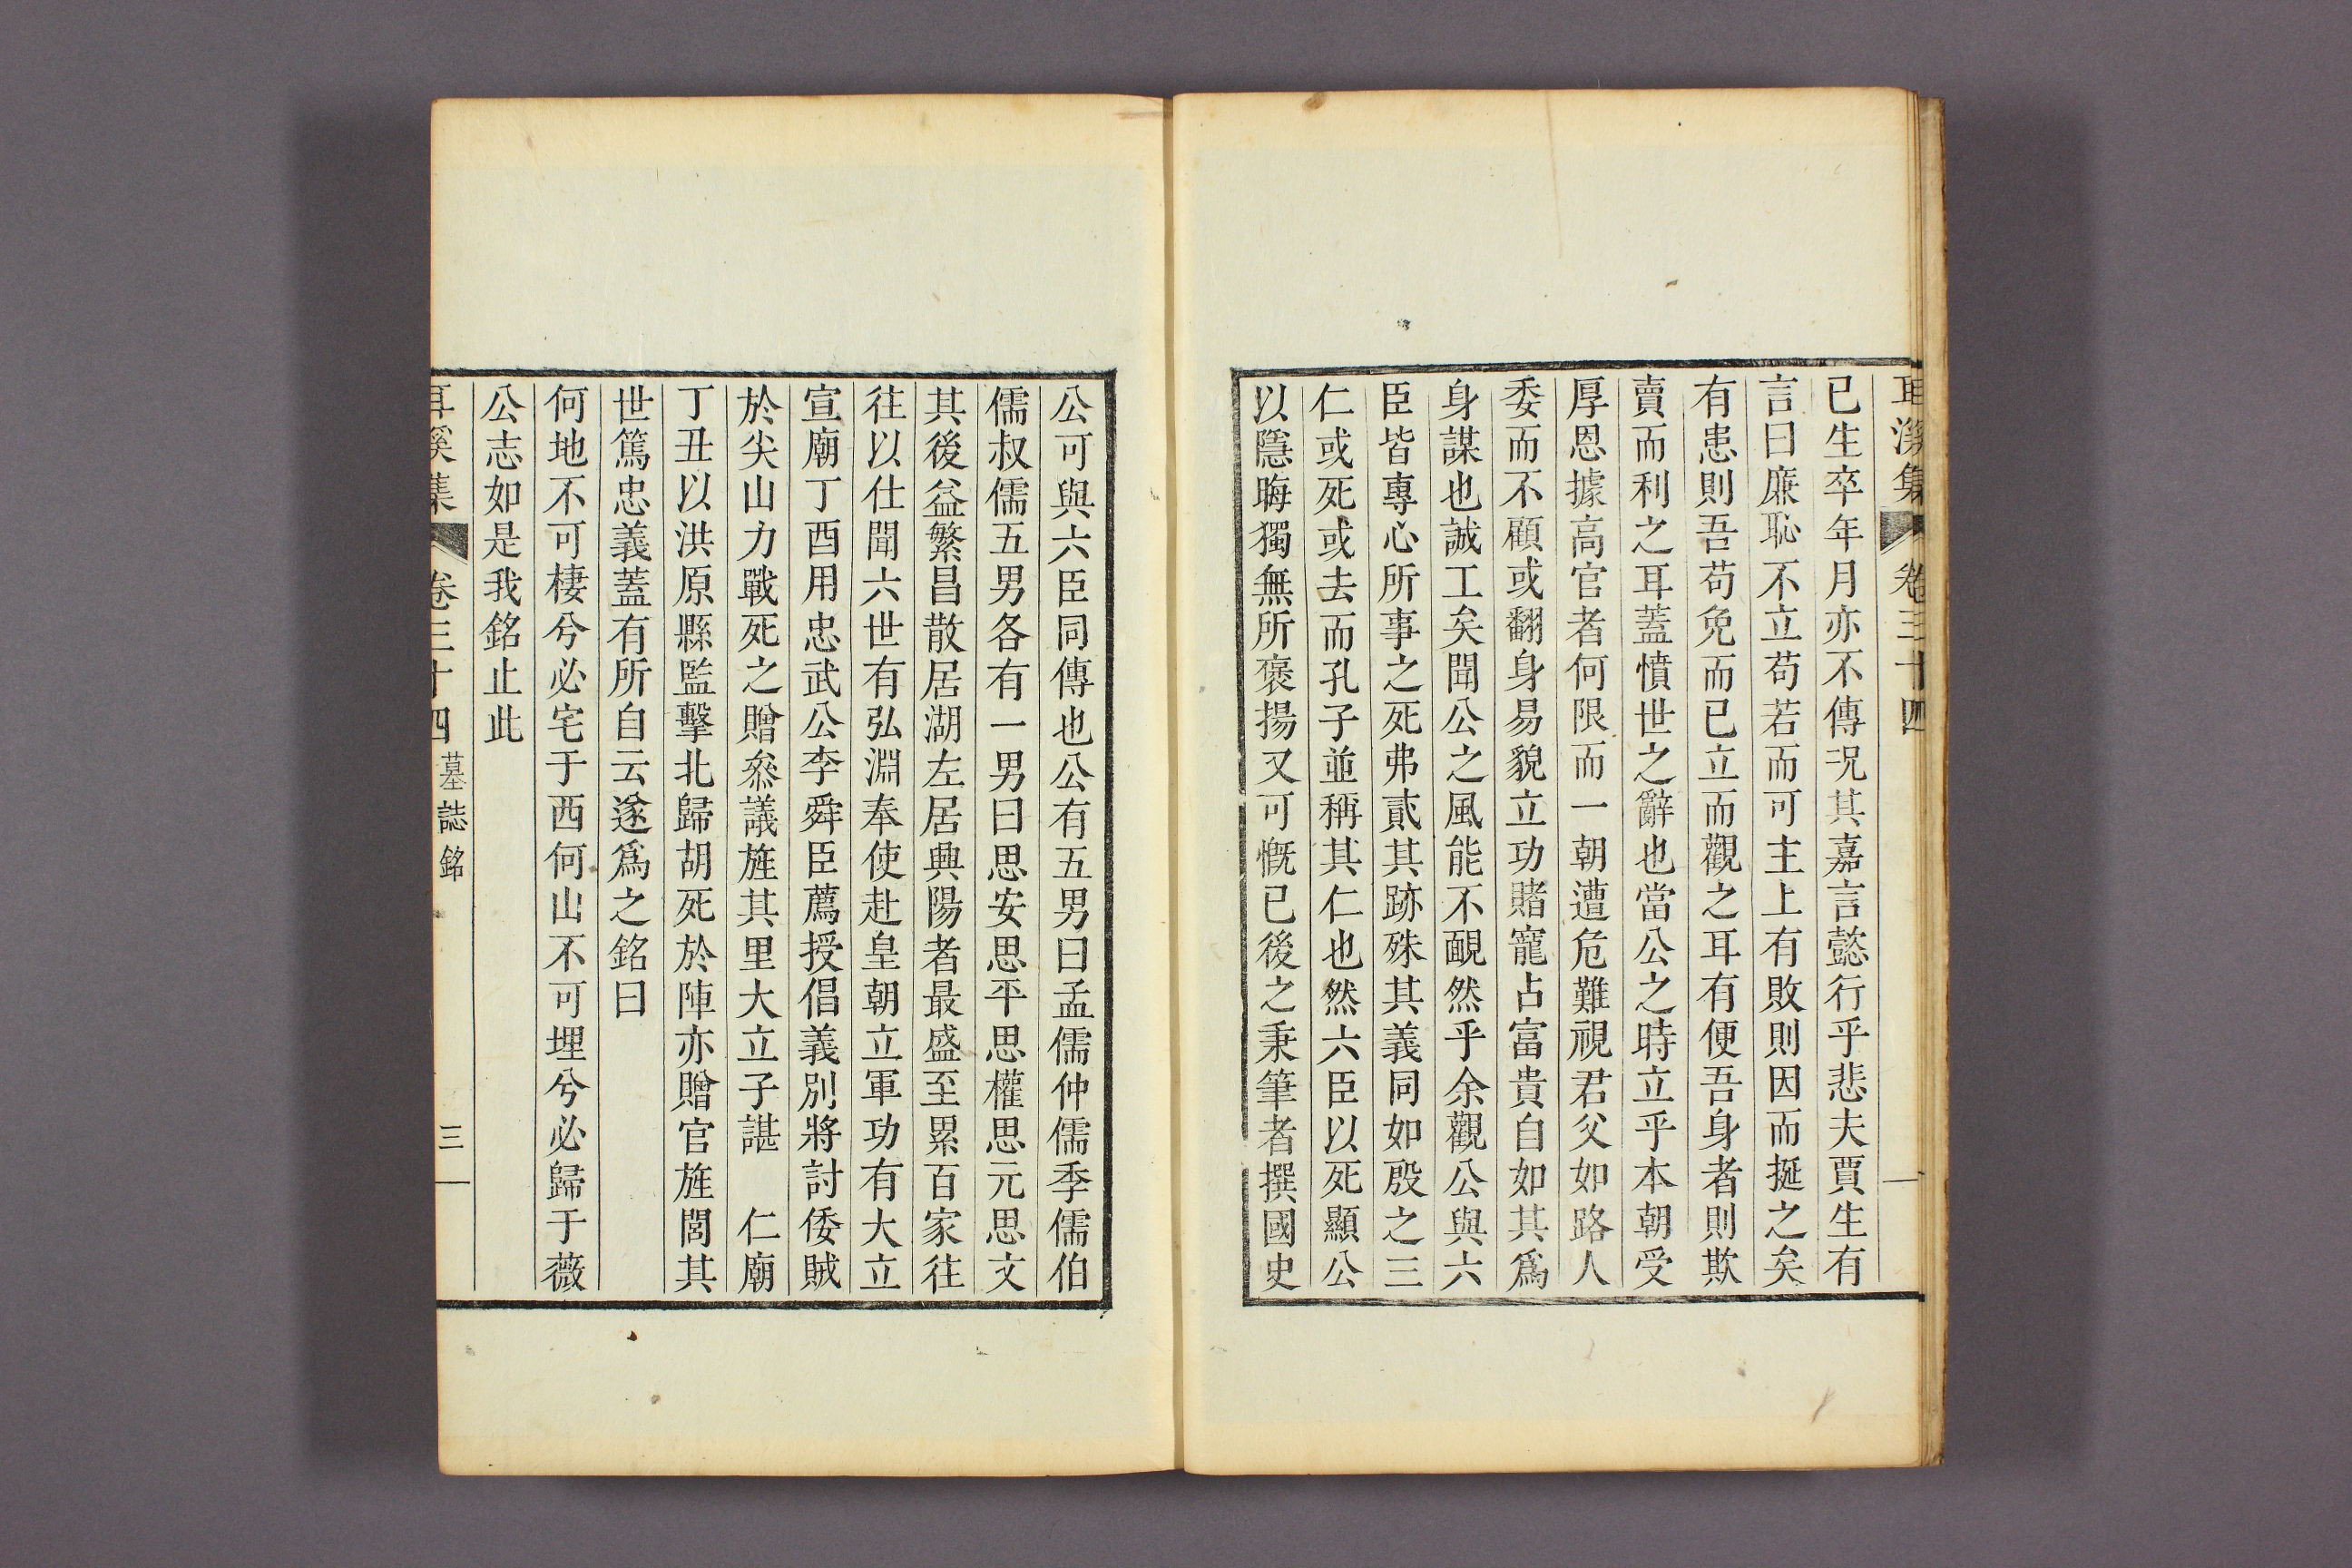 耳溪集 卷三十四
已生卒年月亦不傳况其嘉言懿行乎悲夫賈生有
言曰廉恥不立苟若而可主上有敗則因而挻之矣
有患則吾苟免而已立而觀之耳有便吾身者則欺
賣而利之耳蓋憤世之辭也當公之時立乎本朝受
厚恩據高官者何限而一朝遭危難視君父如路人
委而不顧或翻身易貌立功賭寵占富貴自如其爲
身謀也誠工矣聞公之風能不靦然乎余觀公與六
臣皆專心所事之死弗貳其跡殊其義同如殷之三
仁或死或去而孔子並稱其仁也然六臣以死顯公
以隱晦獨無所褒揚又可慨已後之秉筆者撰國史
公可與六臣同傳也公有五男曰孟儒仲儒季儒伯
儒叔儒五男各有一男曰思安思平思權思元思文
其後益繁昌散居湖左居興陽者最盛至累百家往
往以仕聞六世有弘淵奉使赴皇朝立軍功有大立
宣廟丁酉用忠武公李舜臣薦授倡義別將討倭賊
於尖山力戰死之贈叅議旌其里大立子諶 仁廟
丁丑以洪原縣監擊北歸胡死於陣亦贈官旌閭其
世篤忠義蓋有所自云遂爲之銘曰
何地不可棲兮必宅于西何山不可埋兮必歸于薇
公志如是我銘止此
耳溪集 卷三十四 墓誌銘 三